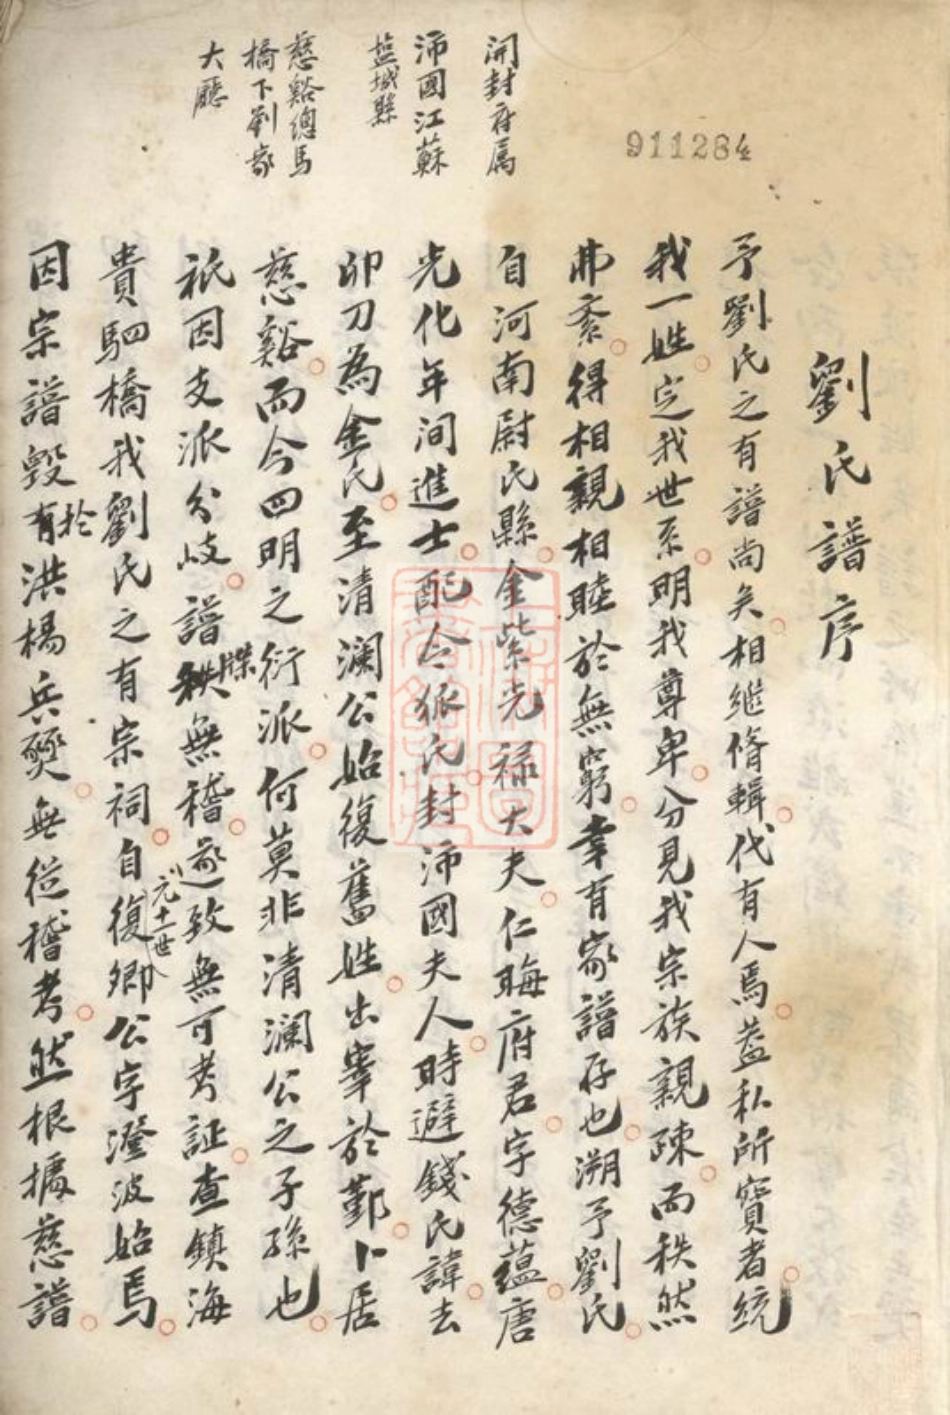 911284
劉氏譜序
予劉氏之有譜尚矣相繼脩輯代有人焉蓋私所寶者統
我一姓定我世系明我尊卑分見我宗族親疎而秩然
弗紊得相親相睦於無窮幸有家譜存也溯予劉氏
自河南尉氏縣金紫光祿大夫仁晦府君字德蘊唐
光化年間進士配令狐氏封沛國夫人時避錢氏諱去
卯刀為金氏至清瀾公始復舊姓出宰於鄞卜居
慈谿而今四明之衍派何莫非清瀾公之子孫也
祇因支派分岐譜牒無稽迨致無可考証查鎮海
貴駟橋我劉氏之有宗祠自復卿公字澄波始焉
元十一世
因宗譜毀於洪楊兵燹無從稽考然根據慈譜
開封府属
沛國江蘇
盐城縣
慈谿總馬
橋下劉家
大廳